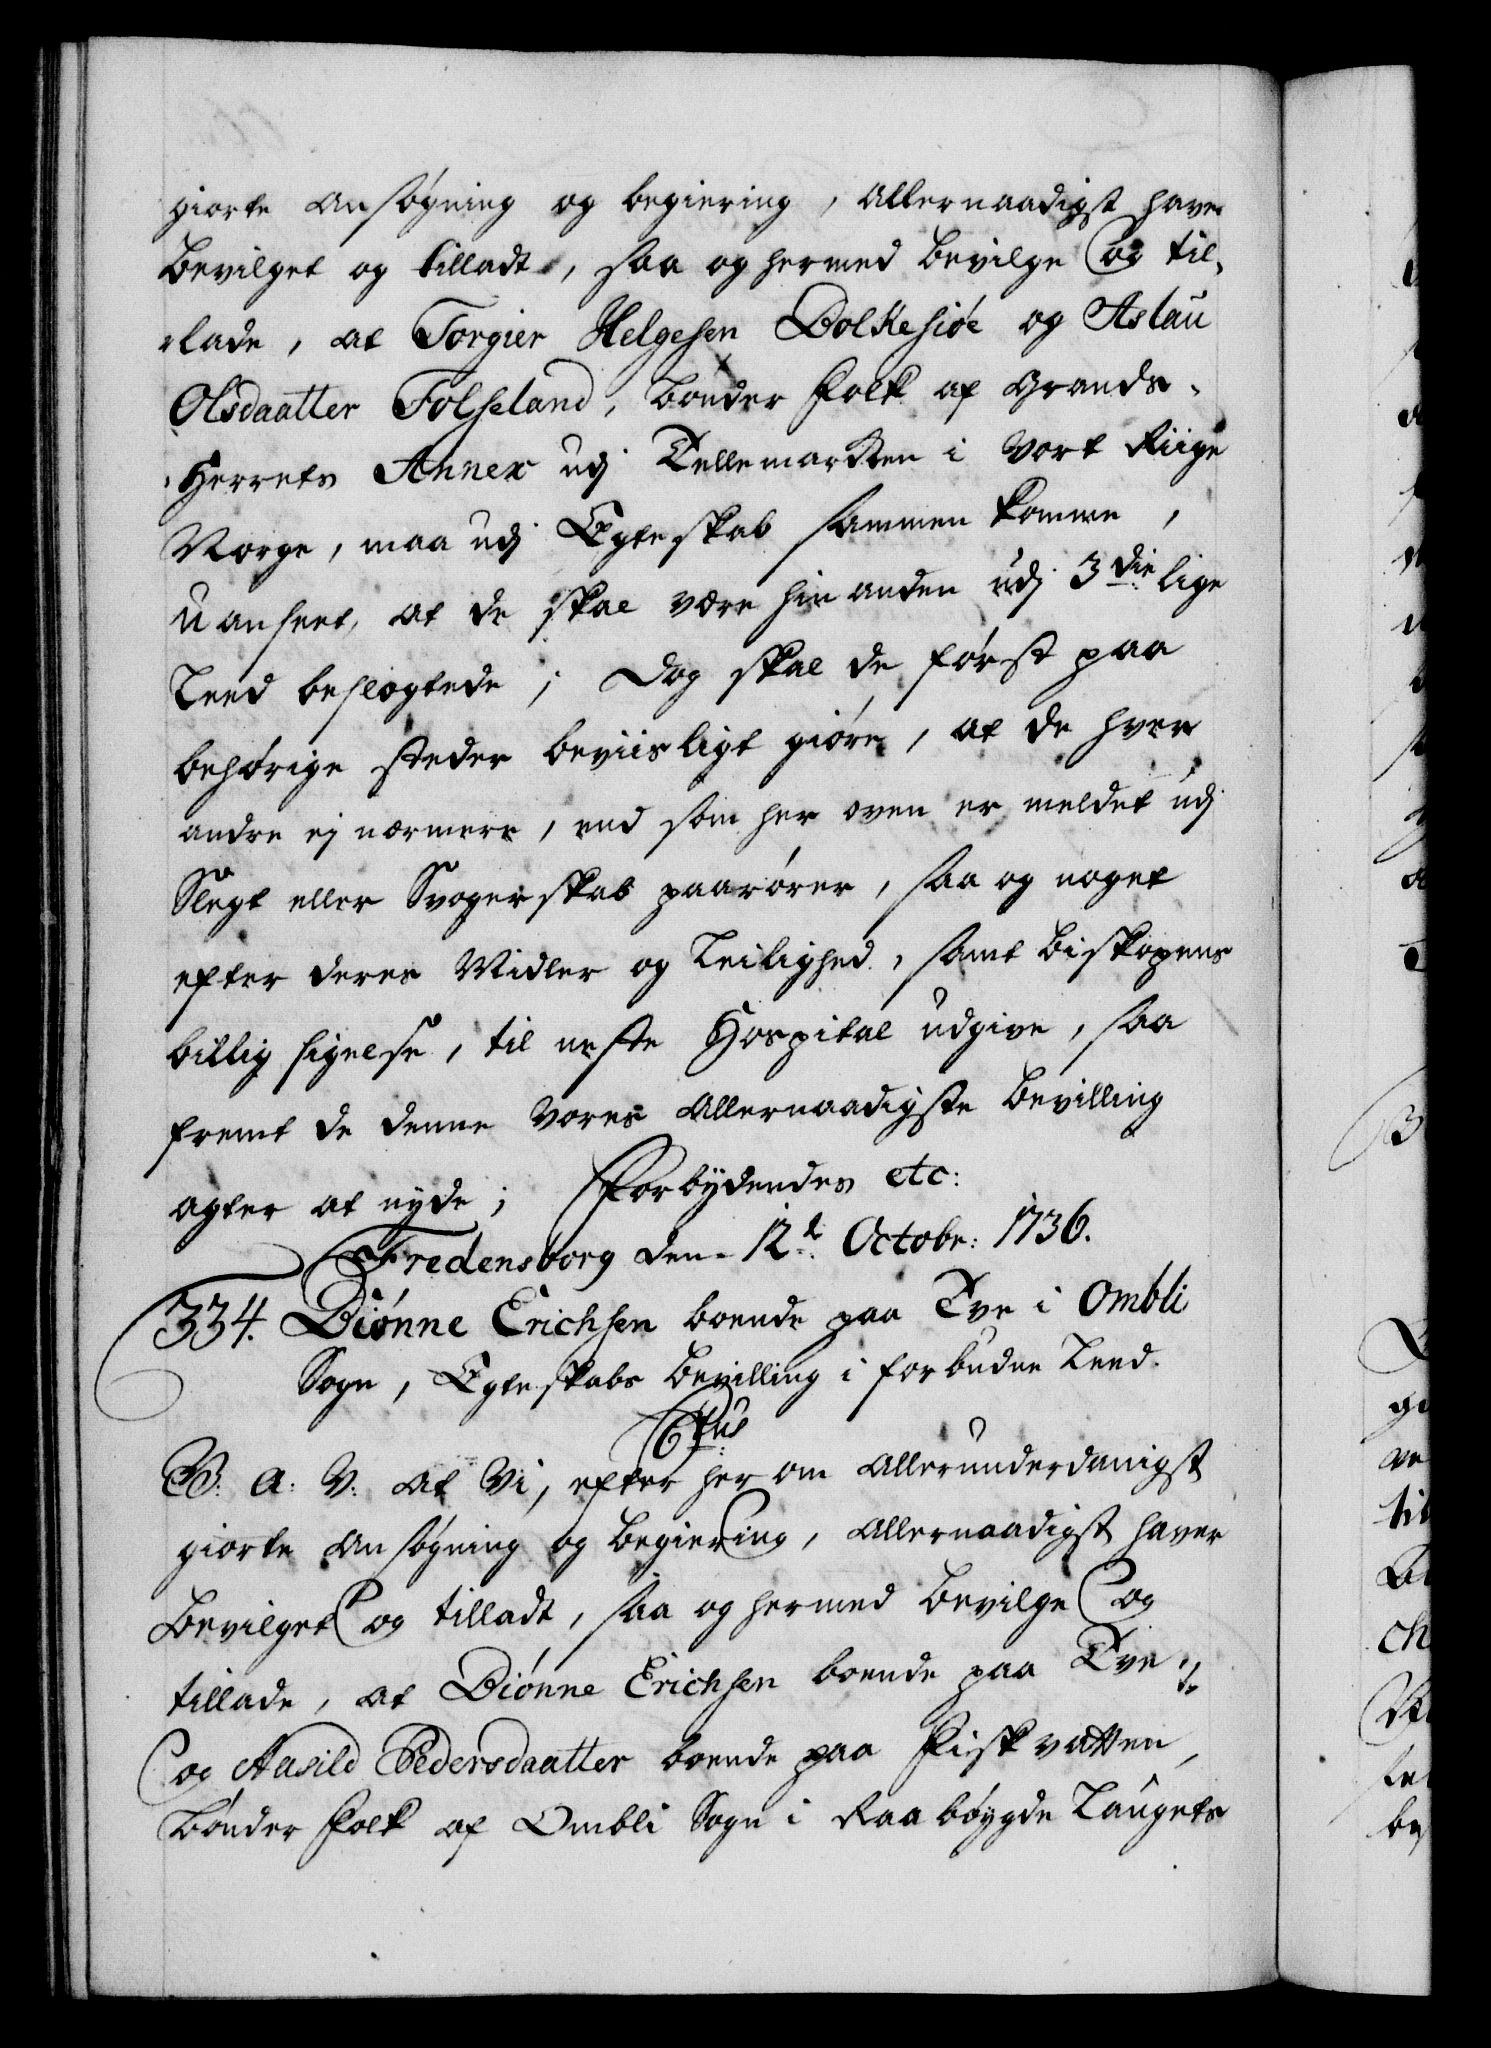 giorte Ansøgning og begiering, Allernaadigst have
bevilget og tilladt, saa og hermed bevilge og til-
lade, at Torgier Helgesen Bolkesiøe og Aslau
Olsdaatter Folseland, bønder Folk af Grands-
Herrets Annex udj Tellemarken i Vort Riige
Norge, maa udj Egteskab sammen komme,
uanseet, at de skal være hinanden udj 3die lige
Leed beslegtede; Dog skal de først paa
behørige steder beviisligt giøre, at de hver
andre ej nærmere, end som her oven er meldet udj
Slegt eller Svogerskab paarører, saa og noget
efter deres Midler og Leilighed, samt biskopens
billig sigelse, til neste Hospital udgive, saa
fremt de denne Vores Allernaadigste bevilling
agter at nyde; Forbydendes etc:
Fredensborg den 12te Octobr: 1736.
334. Biønne Erichsen boende paa Tve i Ombli
Sogn, Egteskabs bevilling i forbudne Leed.
C6tus
G: A: V: at Vi, efter her om allerunderdanigst
giorte Ansøgning og begiering, allernaadigst haver
bevilget og tilladt, saa og hermed bevilge og
tillade, at Biønne Erichsen boende paa Tve
og Aasild Pedersdaatter boende paa Fiskvatten,
bønder Folk af Ombli Sogn i Raabøygde Laugets